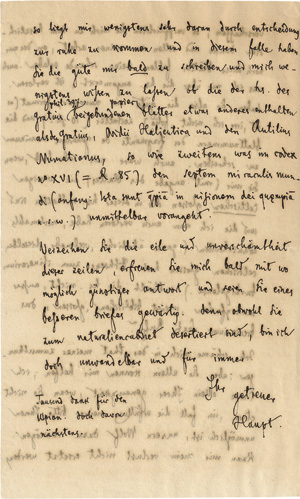 so liegt mir wenigstens sehr daran durch entscheidung
zur ruhe zu kommen und in diesem falle haben
Sie die güte mir bald zu schreiben und mich we-
nigstens wissen zu lassen ob die der hs. des
papier
gratius beigebundenen blätter etwas anderes enthalten
als des Gratius, Ovidii Halieutica und den Rutilius
Numatianus, so wie zweitens, was im codex
no XVI (= L. 85.) den septem miraculis mun-
di (anfang: Ista sunt
u.s.w.) unmittelbar vorangeht.
Verzeihen Sie die eile und unverschämtheit
dieser zeilen, erfreuen Sie mich bald mit wo
möglich günstiger antwort und seien Sie eines
besseren briefes gewärtig. denn obwohl Sie
zum naturaliencabinet desertiert sind, bin ich
doch unwandelbar und für immer
Ihr getreuer
Haupt.
Tausend dank für den
Ulpian. doch davon
nächstens.